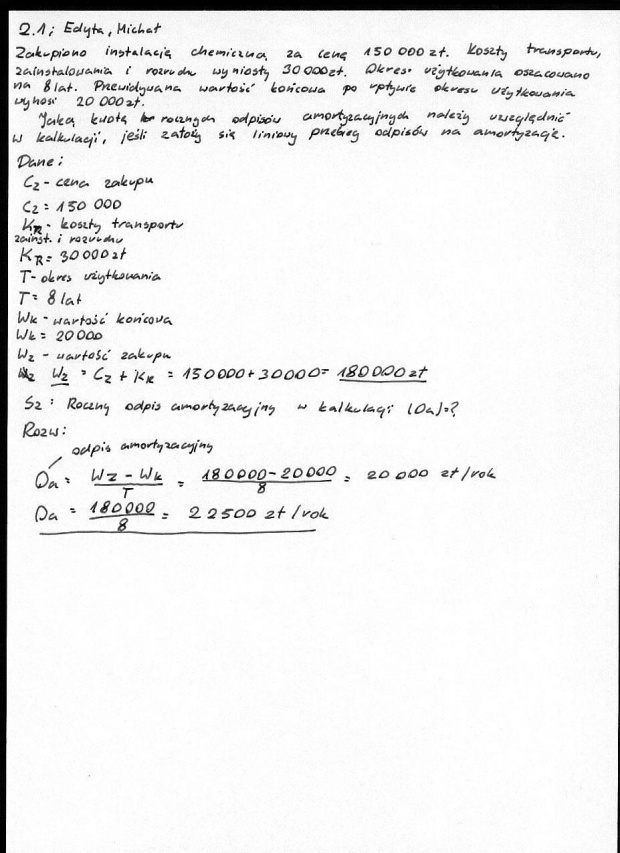 2.1; Edyta, Michał
Zakupiono instalację chemiczną za cenę 150 000 zł. Koszty transportu,
zainstalowania i rozruchu wyniosły 30 000 zł. Okres użytkowania oszacowano
na 8 lat. Przewidywana wartość końcowa po upływie okresu użytkowania
wynosi 20 000 zł.
Jaką kwotę rocznych odpisów amortyzacyjnych należy uwzględnić
w kalkulacji, jeśli założy się liniowy przebieg odpisów na amortyzację.
Dane:
Cz - cena zakupu
Cz = 150 000
KR - koszty transportu
zainst. i rozruchu
KR = 30 000 zł
T - okres użytkowania
T = 8 lat
Wk - wartość końcowa
Wk = 20 000
Wz - wartość zakupu
Wz = Cz + KR = 150 000 + 30 000 = 180 000 zł
Sz: Roczny odpis amortyzacyjny w kalkulacji (Oa)=?
Rozw:
odpis amortyzacyjny
Oa = Wz - Wk / T = 180 000 - 20 000 / 8 = 20 000 zł/rok
Oa = 180000 / 8 = 22500 zł/rok